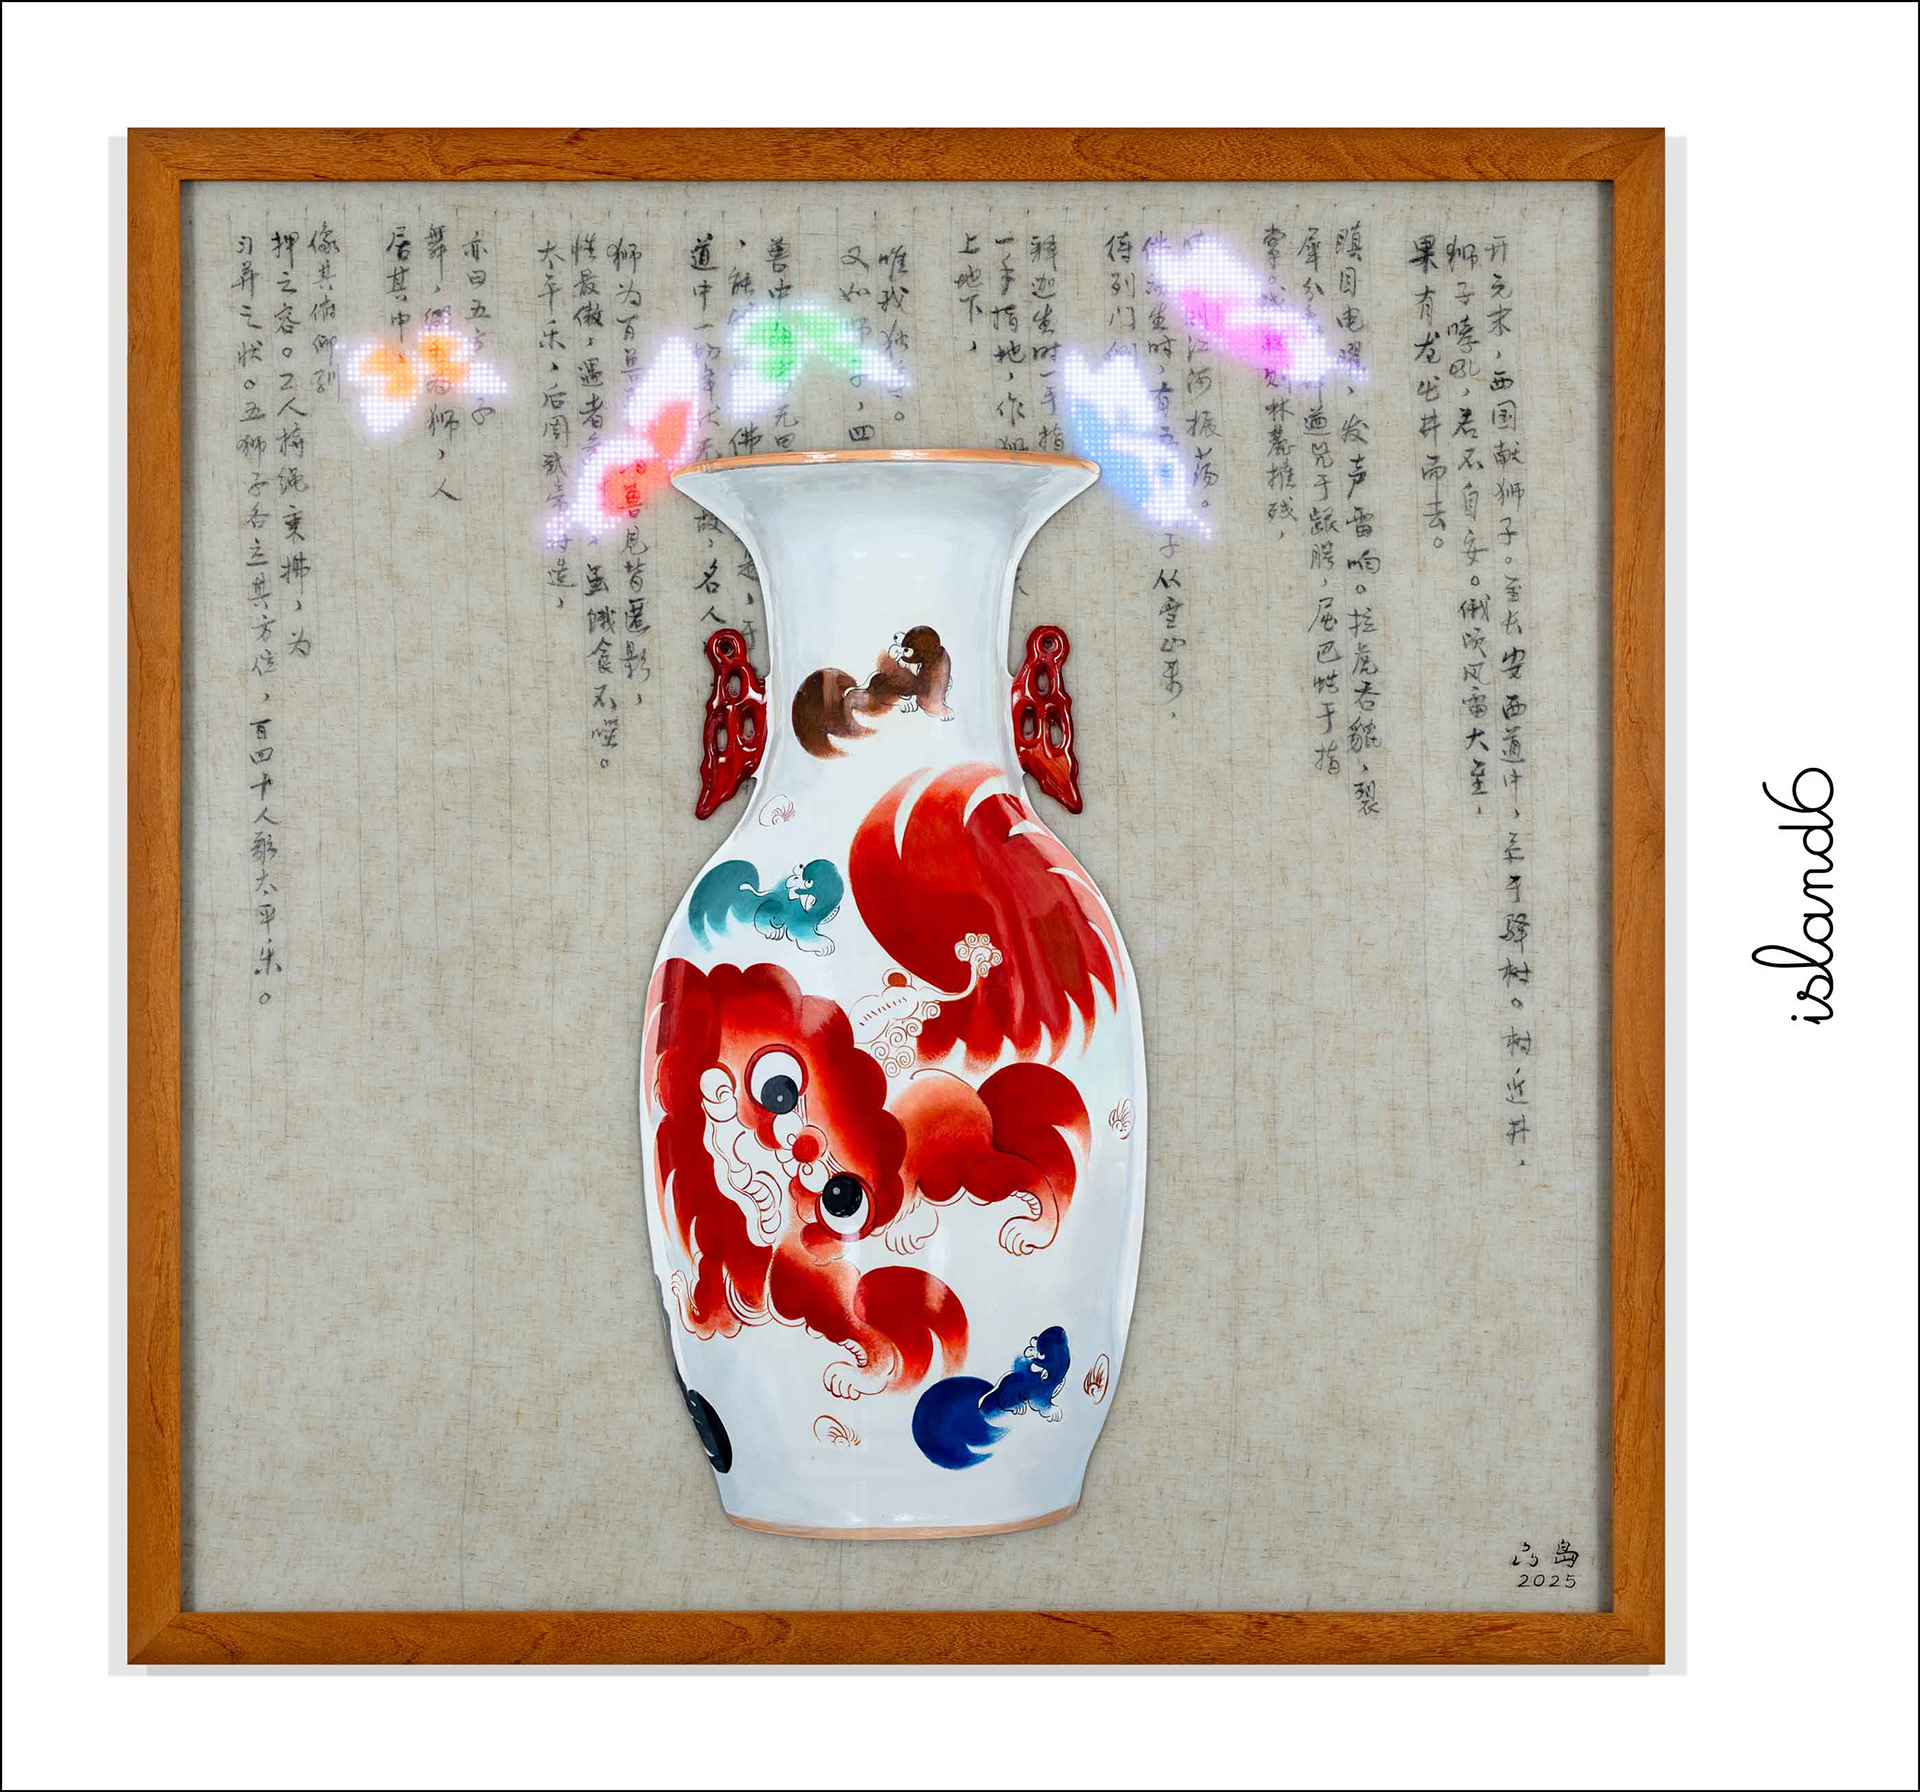 开元末，西国献狮子。至长安西道中，系于驿树。树近井，
狮子哮吼，若不自安。俄顷风雷大至，
果有龙出井而去。
瞋目电曜，发声雷响。拉虎吞貔，裂
犀分
遒兕于龈腭，屈巴蛇于指
掌。
则林麓摧残，
江河振荡。
生时，有五
子从雪山来，
侍列门侧
释迦生时一手指
一手指地，作
上地下，
唯我独
又如
，四
兽中
佛
道中一切
故，名人
狮为百兽
兽见皆匿影，
性最傲，遇者
虽饿食不
太平乐，后周武帝时造，
亦曰五方
子
舞，
为狮，人
居其中，
像其俯仰驯
押之容。二人持绳秉拂，为
习弄之状。五狮子各立其方位，百四十人歌太平乐。
六岛
2025
island6